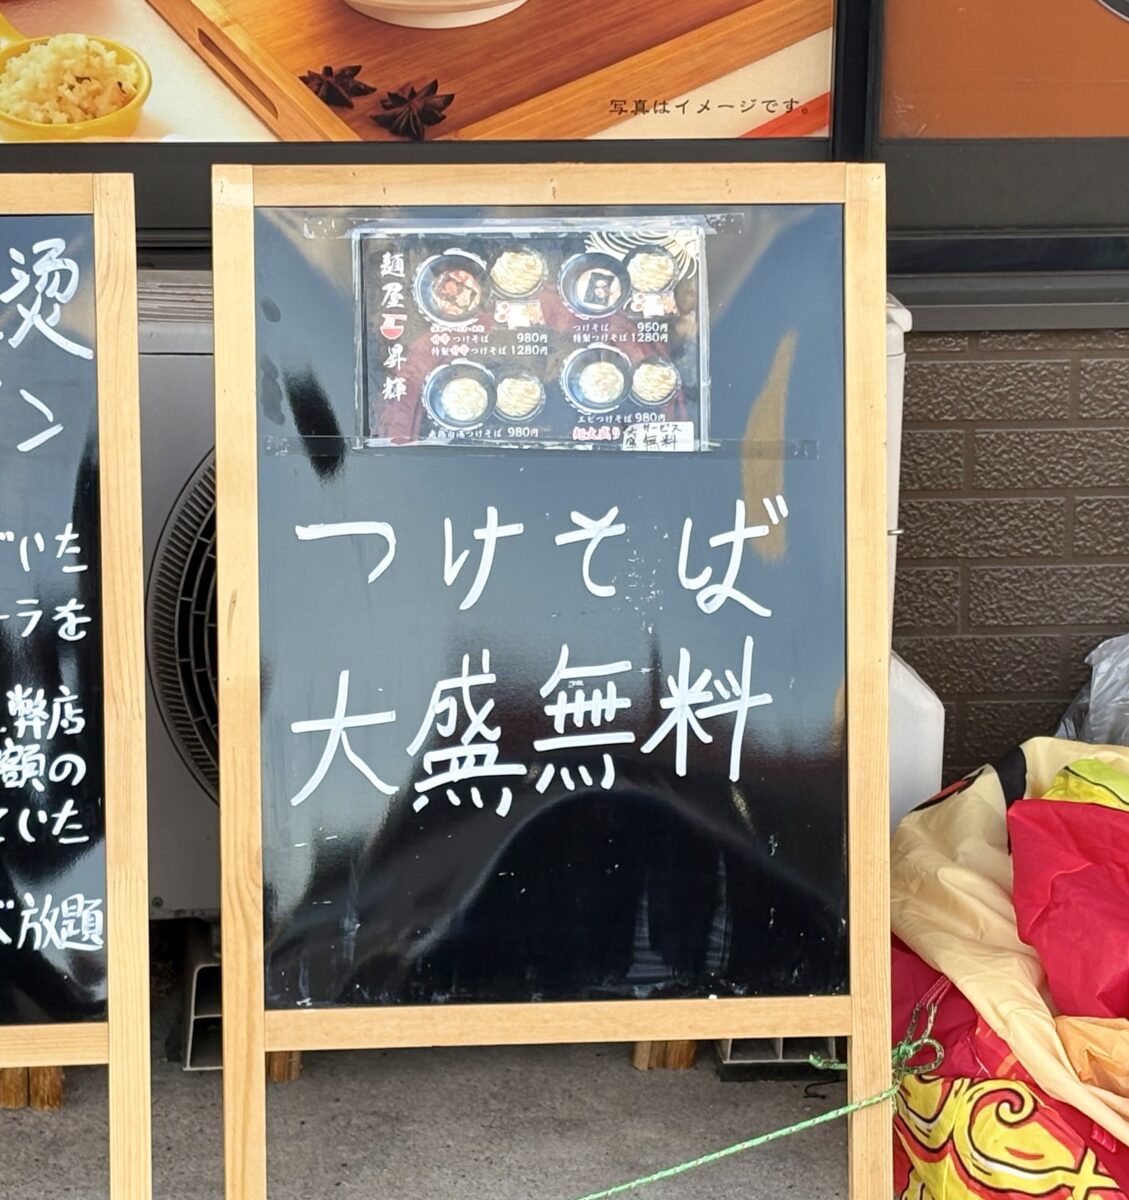 写真はイメージです。
麺屋
昇輝
つけそば 980円
特製 つけそば 1280円
つけそば 950円
特製つけそば 1280円
つけそば 980円
エビつけそば 980円
サービス
無料
つけそば
大盛無料
ン
いた
ラを
弊店
額の
ていた
放題